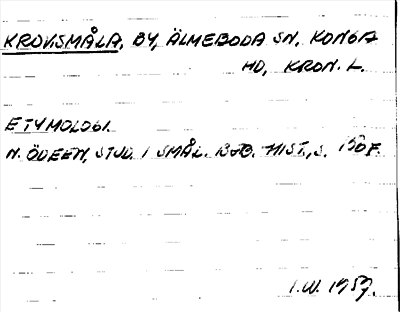 KROKSMÅLA, BY, ÄLMEBODA SN, KONGA
HD, KRON. L.
ETYMOLOGI.
N. ÖDEEN, STUD. I SMÅL. BOB. HIST., S. 180 F.
I.W. 1959.